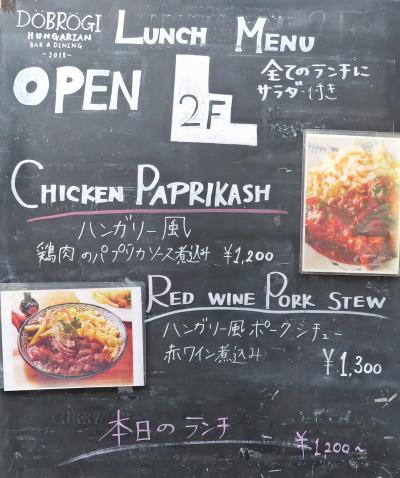 DÖBRÖGI
HUNGARIAN
BAR & DINING
~2018~
LUNCH MENU
OPEN
2F
全てのランチに
サラダ付き
CHICKEN PAPRIKASH
ハンガリー風
鶏肉のパプリカソース煮込み ¥1,200
RED WINE PORK STEW
ハンガリー風ポークシチュー
赤ワイン煮込み
¥1,300
本日のランチ
¥1,200~